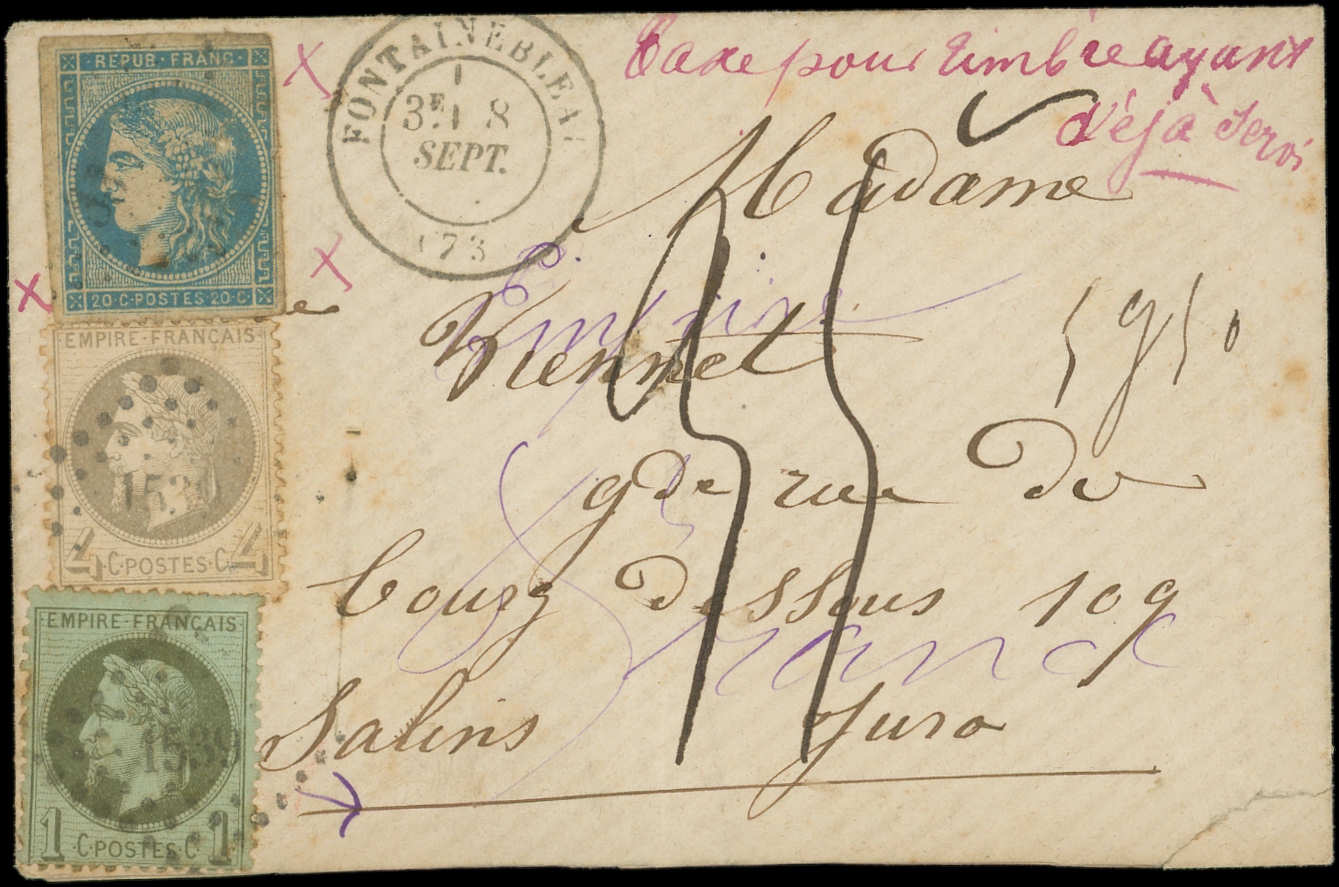 REPUB·FRANC·
20·C·POSTES·20·C·
EMPIRE·FRANÇAIS
153
4 ·C·POSTES·C· 4
EMPIRE·FRANÇAIS
1539
1 ·C·POSTES·C· 1
FONTAINEBLEAU
3E 8
SEPT.
73
Taxe pour timbre ayant
déjà servi
Madame
gde rue de
bourg dessous 109
Salins Jura